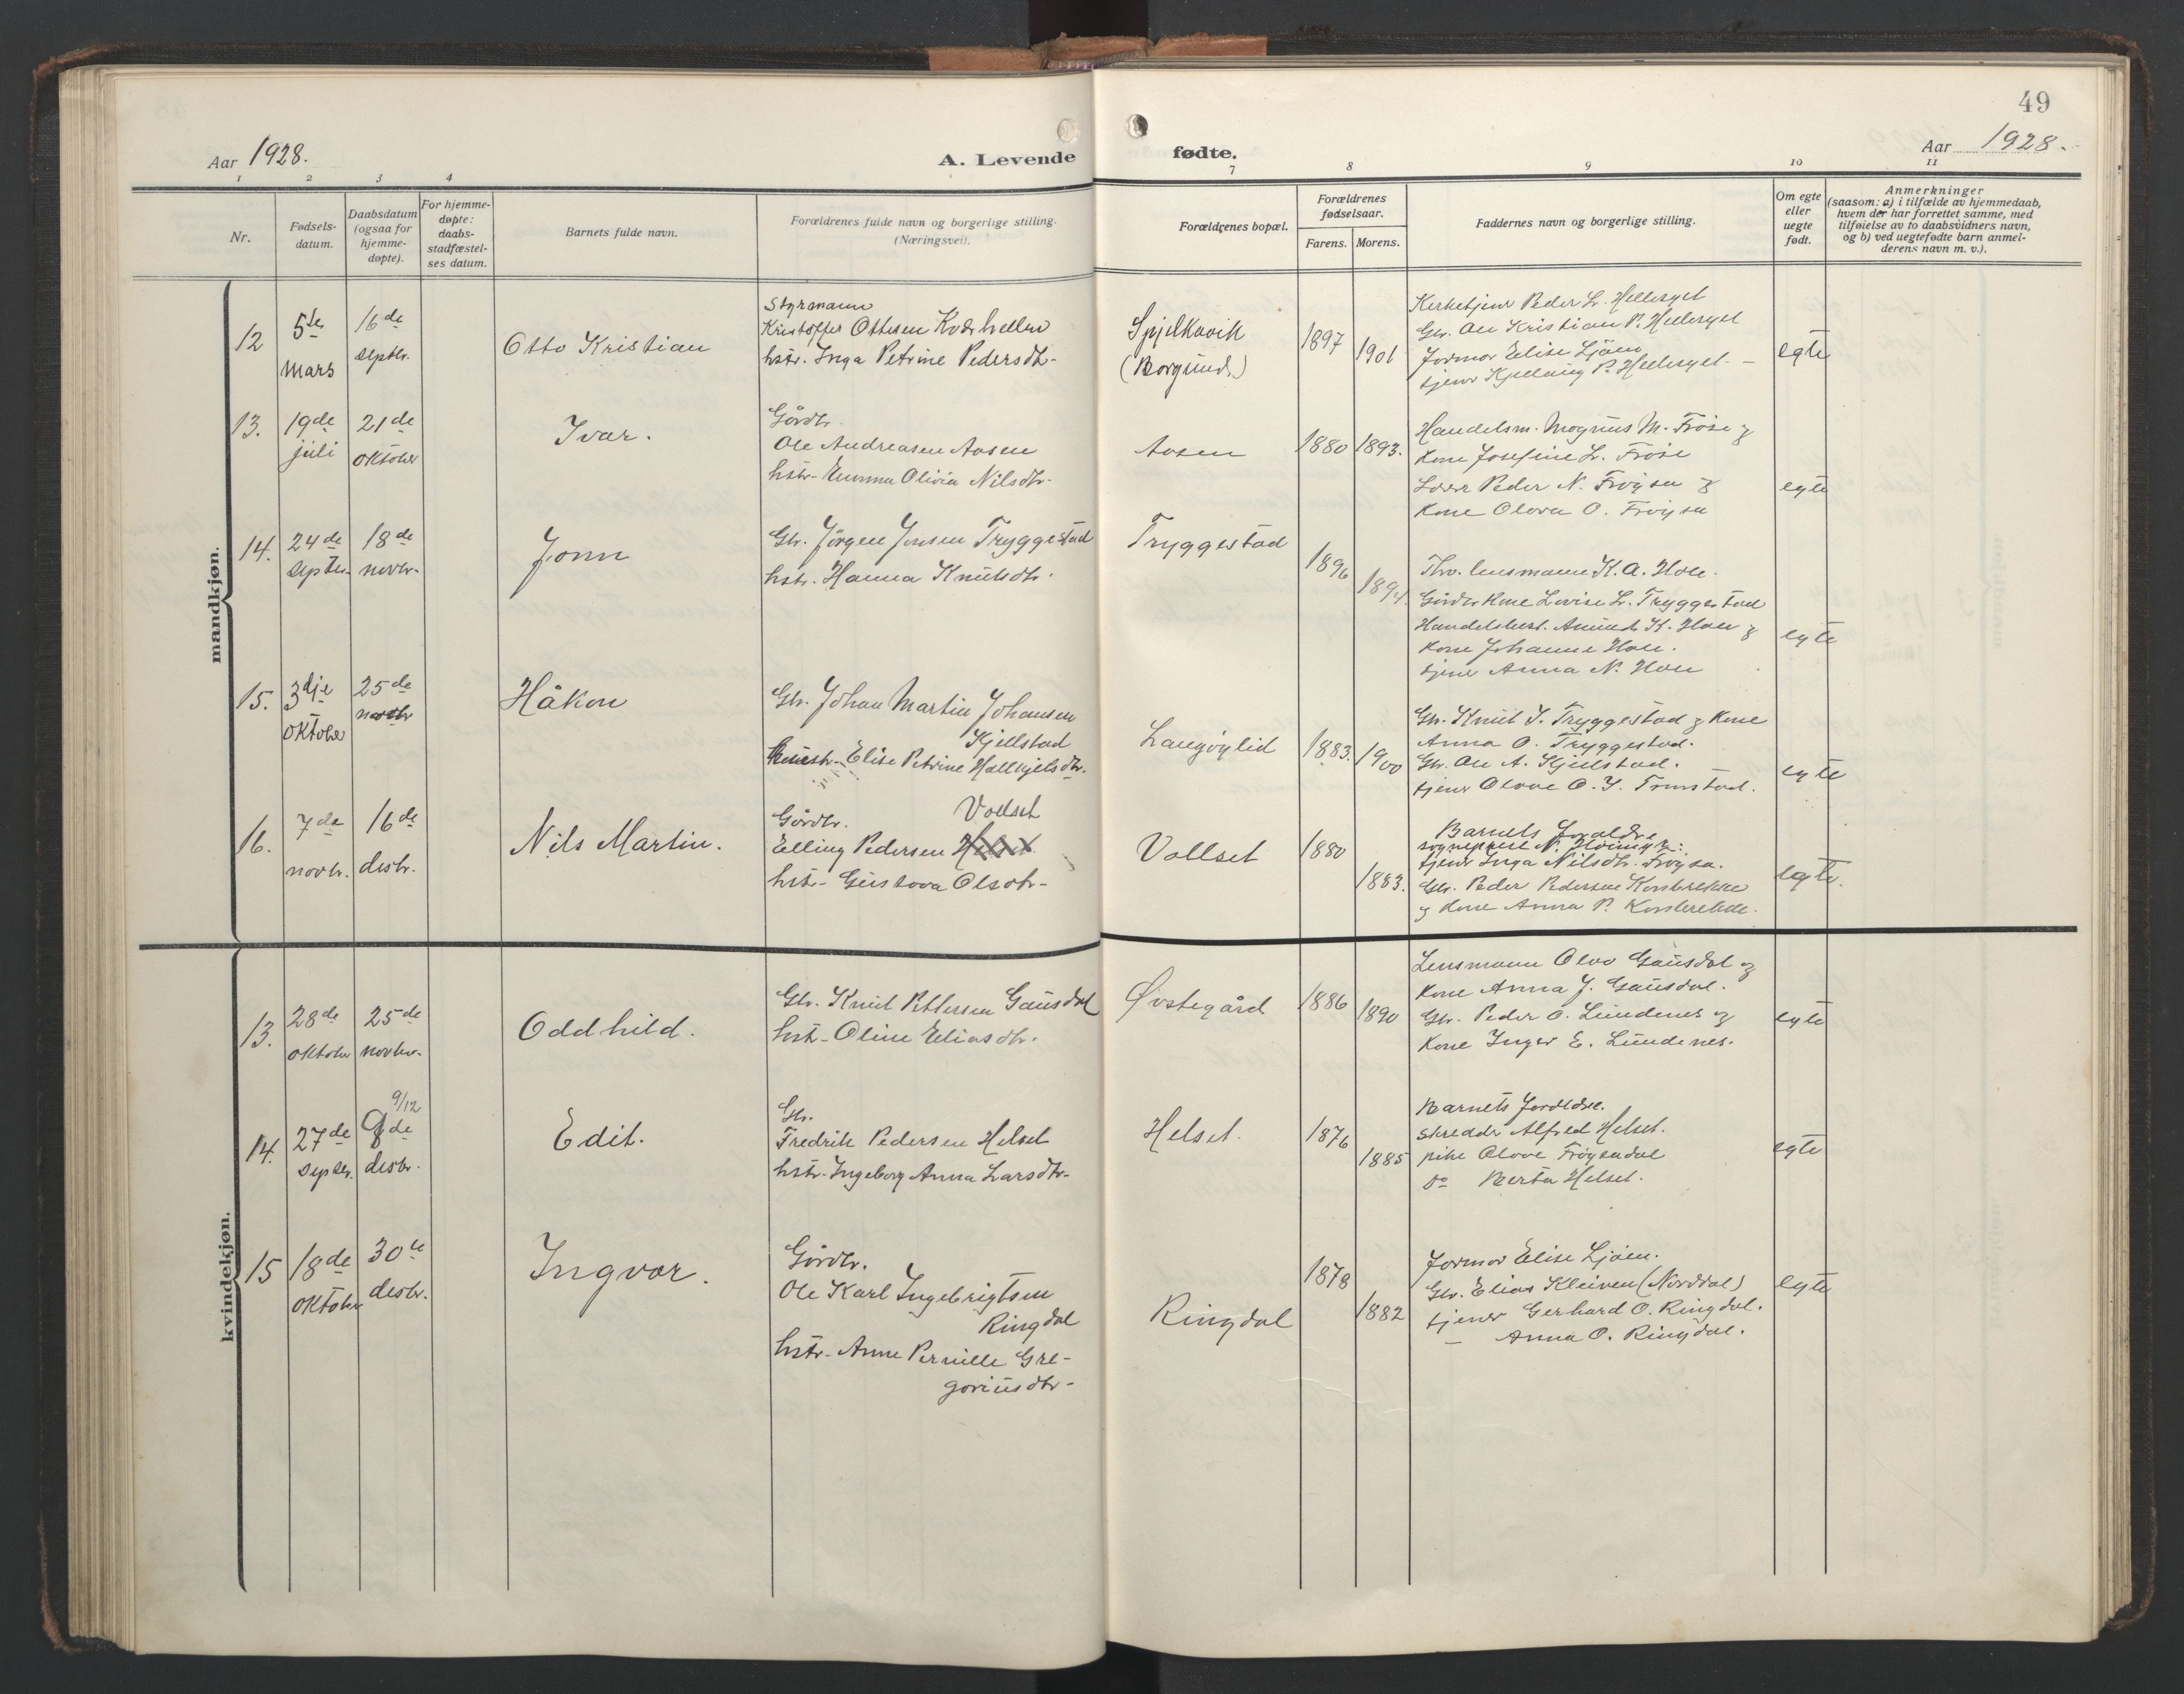 49
Aar 1928.
A. Levende
fødte.
Aar 1928.
1 2 3 4
7 8 9 10 11
Nr.
Fødsels-
datum.
Daabsdatum
(ogsaa for
hjemme-
døpte).
For hjemme-
døpte:
daabs-
stadfæstel-
ses datum.
Barnets fulde navn.
Forældrenes fulde navn og borgerlige stilling.
(Næringsvei).
Forældrenes bopæl.
Forældrenes
fødselsaar.
Farens. Morens.
Faddernes navn og borgerlige stilling.
Om egte
eller
uegte
født.
Anmerkninger
(saasom: a) i tilfælde av hjemmedaab,
hvem der har forrettet samme, med
tilføielse av to daabsvidners navn,
og b) ved uegtefødte barn anmel-
derens navn m. v.).
mandkjøn.
12
5te
mars
16de
septbr.
Otto Kristian
Styrmann
Kristoffer Ottesen
hstr. Inga Petrine Pedersdtr.
Spjelkavik
(Borgund)
1897
1901
Kirketjener Peder L. Hellesylt
Gbr. Ole Kristian P. Hellesylt
Jormor Elise Ljøen
tjener P. Hellesylt
egte
13.
19de
juli
21de
oktober
Ivar.
Gårdbr.
Ole Andreasen Aasen
hstr. Emma Olivia Nilsdtr.
Aasen
1880
1893.
Handelsm. Magnus M. Frøise &
kone Josefine L. Frøise
Peder N. Frøysa &
kone Olova O. Frøysa
egte
14.
24de
septbr.
18de
novbr.
Jonn
Gbr. Jörgen Jonsen Tryggestad
hstr. Hanna Knutsdtr.
Tryggestad
1896
1894.
Fhv. lensmann K. A. Hole.
Gårdbr. kone Lovise L. Tryggestad
Handelsbest. Amund K. Hole &
kone Johanne Hole.
tjener Anna N. Hole
egte
15.
3dje
oktober
25de
novbr
Håkon
Gbr. Johan Martin Johansen
Kjellstad
hustr. Elise Petrine Hallkjelsdtr.
Langøylid
1883.
1900
Gbr. Knut J. Tryggestad & kone
Anna O. Tryggestad.
Gbr. Ole A. Kjelstad.
tjener Olave O. J. Tronstad.
egte
16.
7de
novbr.
16de
desbr.
Nils Martin.
Gårdbr. Vollset
Elling Pedersen
hstr. Gustava Olsdtr.
Vollset
1880
1883.
Barnets foraldre
sogneprest N.
tjener Inga Nilsdtr. Frøysa.
Gbr. Peder Pedersen Korsbrekke
& kone Anna P. Korsbrekke.
egte.
kvindekjøn.
13.
28de
oktober
25de
novbr.
Oddhild.
Gbr. Knut Pettersen Gausdal
hstr. Oline Eliasdtr.
Øvstegård
1886
1890
Lensmann Olav Gausdal &
kone Anna J. Gausdal.
Gbr. Peder O. Lundenes &
kone Inger E. Lundenes.
egte
14.
27de
septbr.
9/12
9de
desbr.
Edit.
Gbr.
Fredrik Pedersen Helset
hstr. Ingeborg Anna Larsdtr.
Helset.
1876
1885
Barnets foreldre.
Skredder Alfred Helset.
pike Olave Frøysadal
do Berta Helset.
egte
15
18de
oktober
30te
desbr.
Ingvar.
Gårdbr.
Ole Karl Ingebrigtsen
Ringdal
hstr. Anne Pernille Gre-
goriusdtr.
Ringdal
1878
1882
Jormor Elise Ljøen.
Gbr. Elias Kleiven (Norddal)
tjener Gerhard O. Ringdal.
— Anna O. Ringdal.
egte